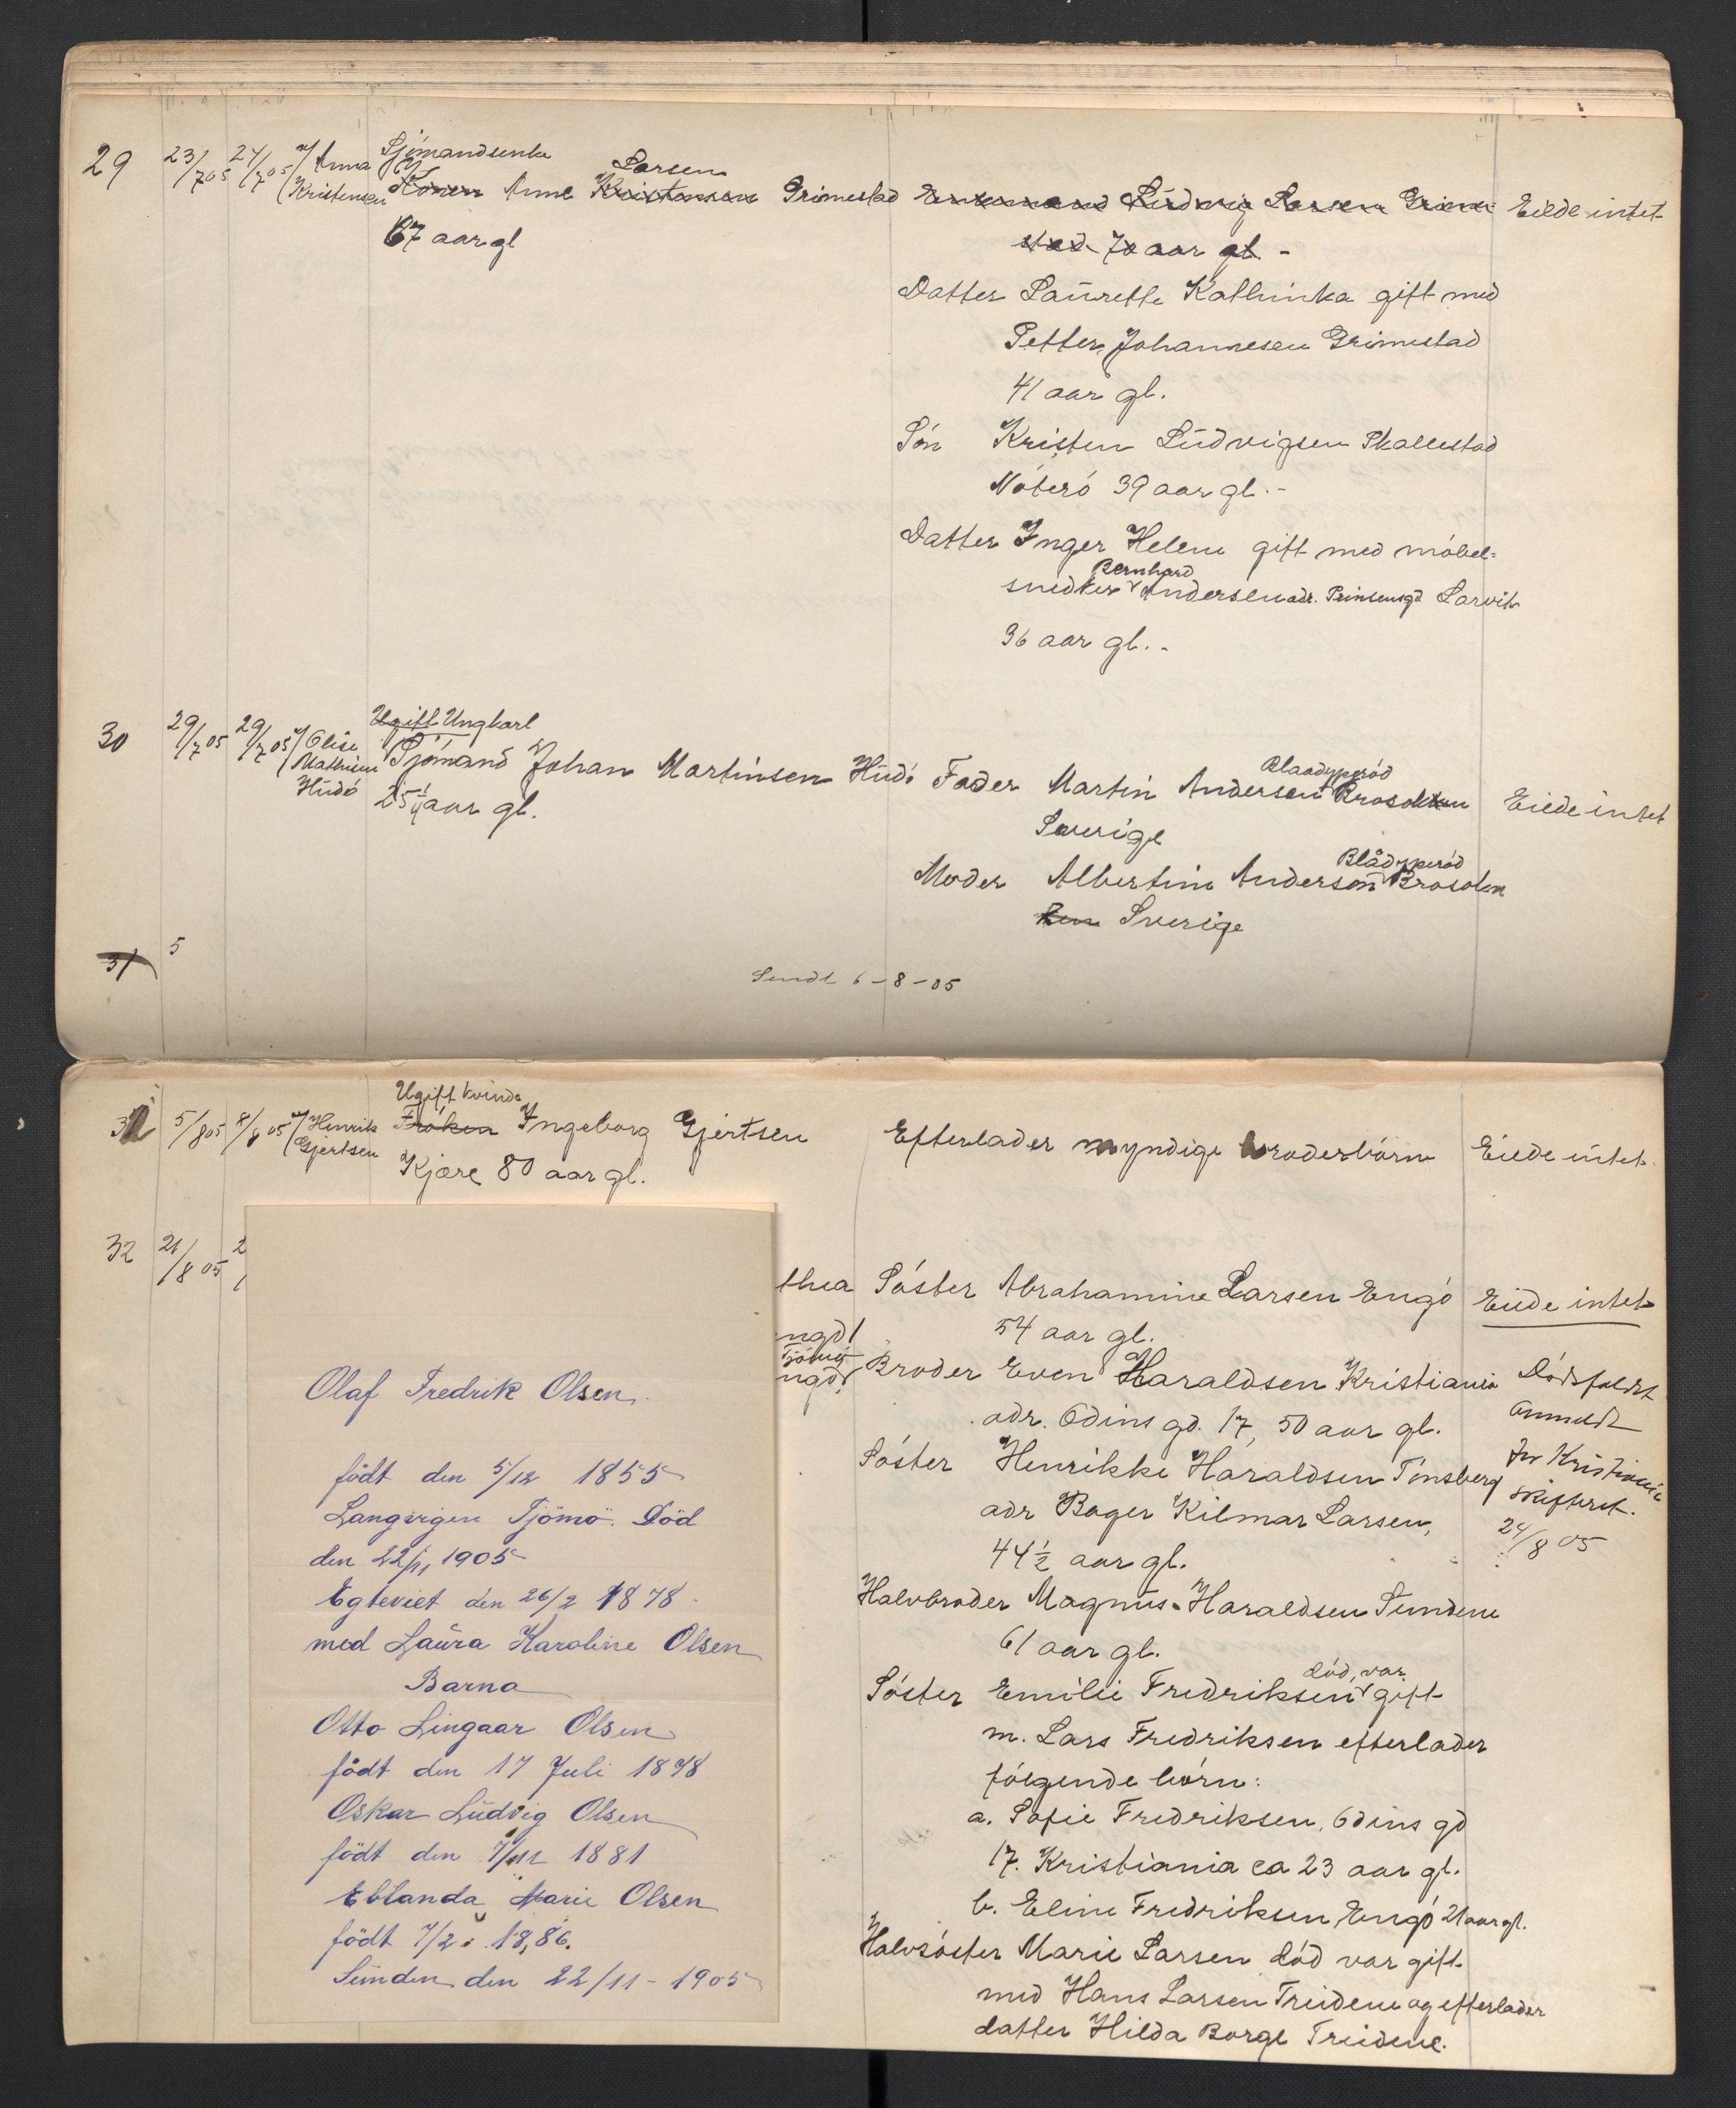 29 23/7 05 24/7 05 v/ Anna Kristensen
Sjömandsenke
Konen Anne Kristensen Larsen Grimestad
67 aar gl
Enkemand Ludvig Larsen Grime-
stad 70 aar gl. -
Eiede intet
Datter Laurette Kathinka gift med
Petter Johannesen Grimestad
41 aar gl.
Sön Kristen Ludvigsen Skallestad
Nöterö 39 aar gl. -
Datter Inger Helene gift med möbel=
snedker Bernhard Andersen adr. Prinsensgd Larvik
36 aar gl. -
30 29/7 05 29/7 05 v/ Olise Mathisen Hudö
Ugift Ungkarl
Sjömand Johan Martinsen Hudö
25 1/4 aar gl.
Fader Martin Andersen Blaadyperöd Brosolen
Sverige
Eiede intet
Moder Albertine Anderson Blådyperöd Brosolen
Sverige
31 5
Sendt 6-8-05
31 5/8 05 8/8 05 v/ Henrik Gjertsen
Ugift kvinde
Fröken Ingeborg Gjertsen
Kjære 80 aar gl.
Efterlader myndige broderbörn
Eiede intet.
32 21/8 05 2
thea
ngd
Tjömö
ngd
Söster Abrahamine Larsen Engö
54 aar gl.
Eiede intet
Broder Even Haraldsen Kristiania
adr. Odins gd. 17, 50 aar gl.
Dödsfaldet
anmeldt
for Kristiania
skifteret.
24/8 05
Söster Henrikke Haraldsen Tönsberg
adr Bager Kilmar Larsen,
44 1/2 aar gl.
Halvbroder Magnus Haraldsen Sundene
61 aar gl.
Söster Emilie Fredriksen död, var gift
m. Lars Fredriksen efterlader
fölgende börn:
a. Sofie Fredriksen, Odins gd
17. Kristiania ca 23 aar gl.
b. Eline Fredriksen Engö 21 aar gl.
Halvsöster Marie Larsen död var gift
med Hans Larsen Treidene og efterlader
datter Hilda Borge Treidene.
Olaf Fredrik Olsen.
födt den 5/12 1855
Langvigen Tjömö. Död
den 22/11 1905
Egteviet den 26/2 1878.
med Laura Karoline Olsen
Barna
Otto Lingaar Olsen
födt den 17 Juli 1878
Oskar Ludvig Olsen
födt den 7/11 1881
Eblanda Marie Olsen
födt 7/2 . 18,86.
Sunden den 22/11 - 1905